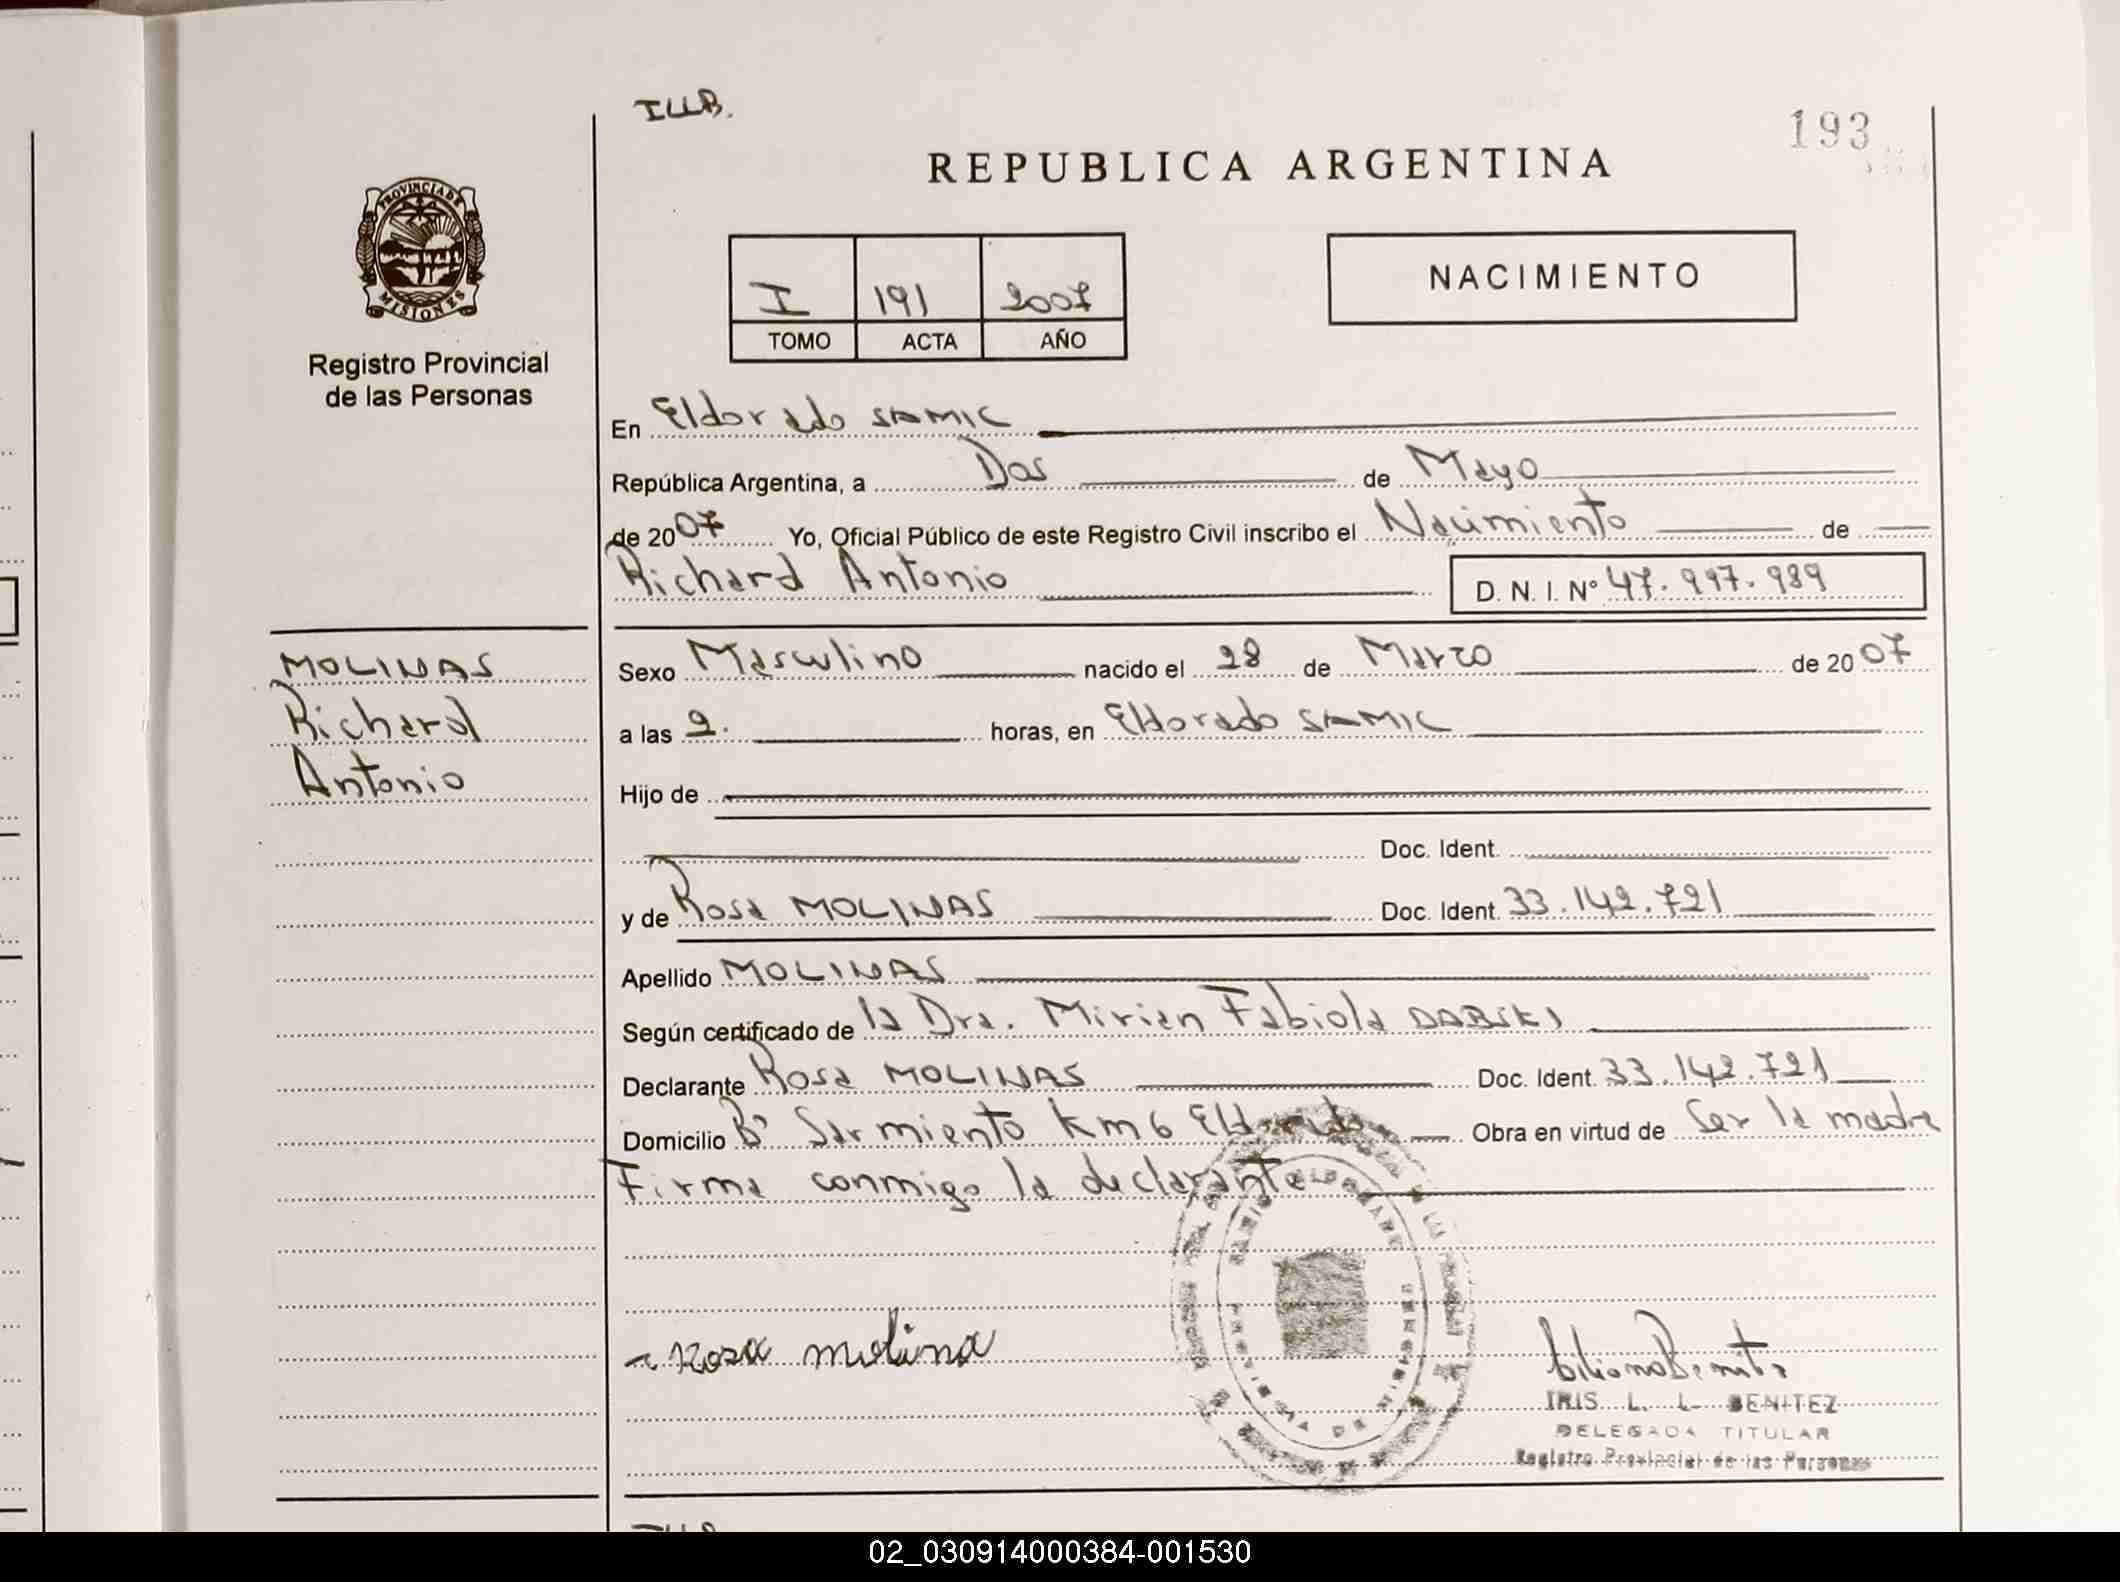 ILLB.
193
REPUBLICA ARGENTINA
PROVINCIA DE
MISIONES
Registro Provincial
de las Personas
I 191 2007
TOMO ACTA AÑO
NACIMIENTO
En Eldorado SAMIC
República Argentina, a Dos de Mayo
de 2007 Yo, Oficial Público de este Registro Civil inscribo el Nacimiento de
Richard Antonio D. N. I. N° 47.997.989
MOLINAS
Richard
Antonio
Sexo Masculino nacido el 28 de Marzo de 2007
a las 2. horas, en Eldorado SAMIC
Hijo de
Doc. Ident.
y de Rosa MOLINAS Doc. Ident. 33.142.721
Apellido MOLINAS
Según certificado de la Dra. Mirian Fabiola DABSKI
Declarante Rosa MOLINAS Doc. Ident. 33.142.721
Domicilio B° Sarmiento Km 6 Eldorado Obra en virtud de Ser la madre
Firma conmigo la declarante
Rosa molina
IRIS L. L. BENITEZ
DELEGADA TITULAR
Registro Provincial de las Personas
02_030914000384-001530